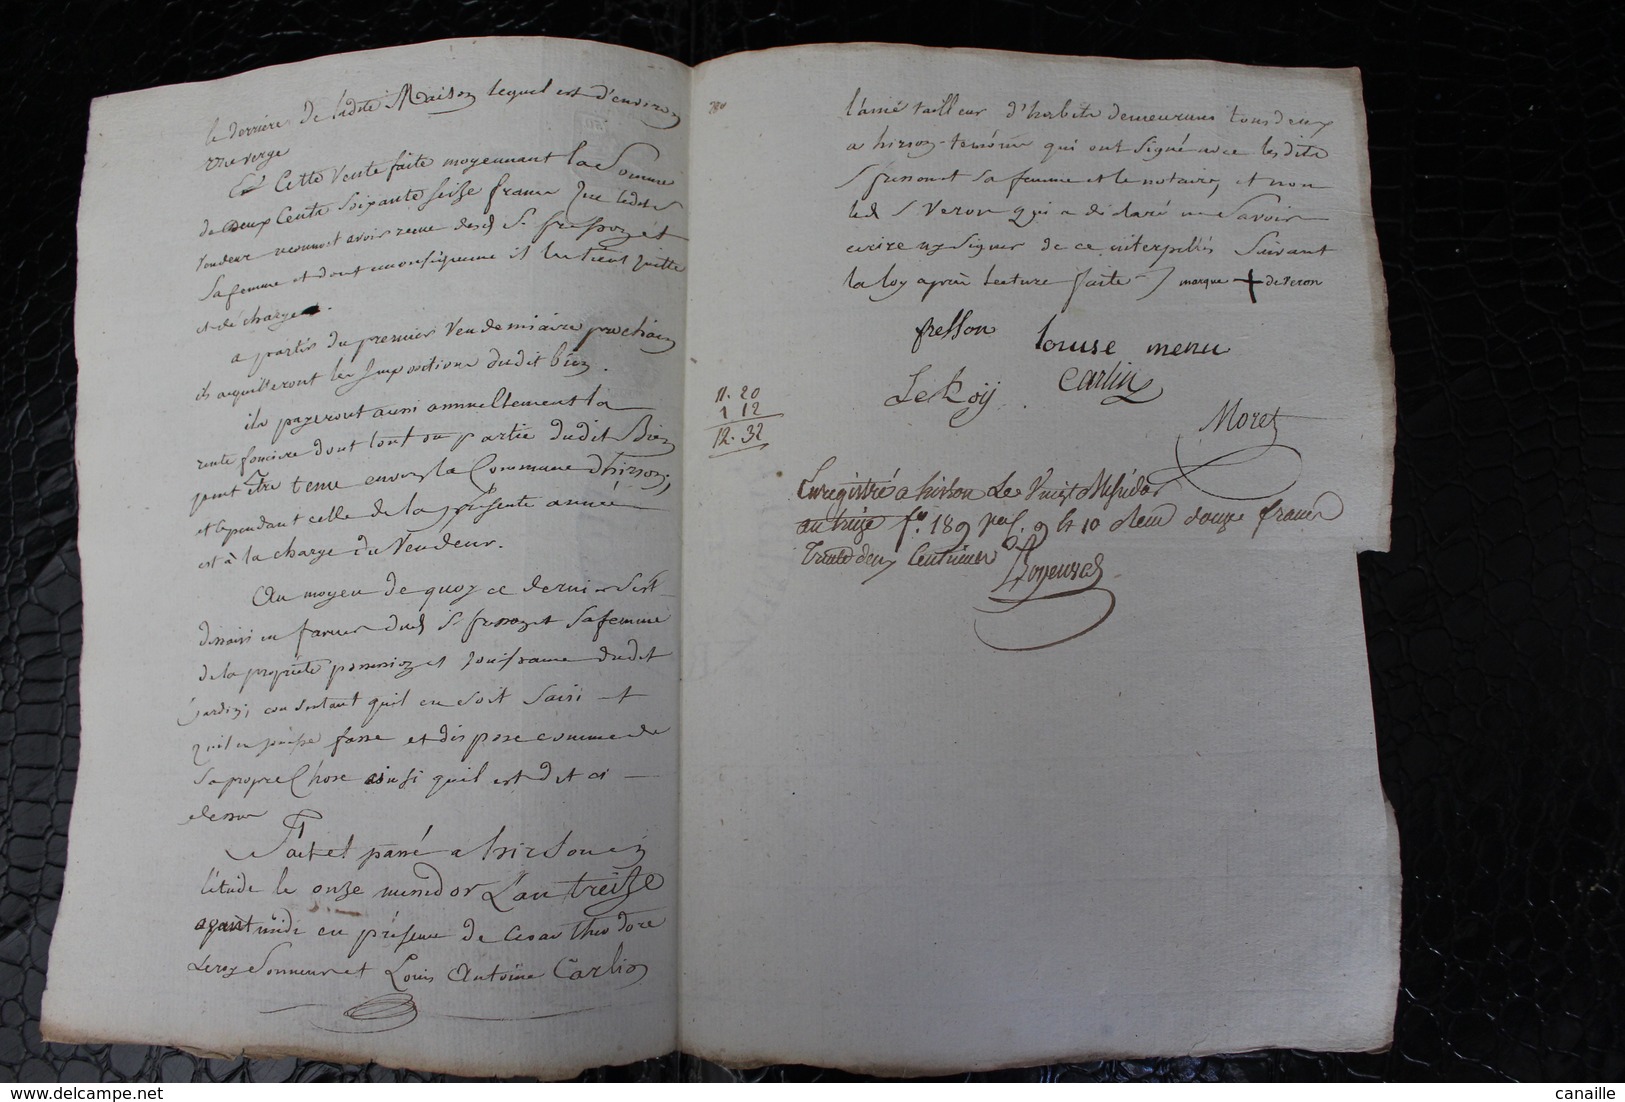 le derriere de ladite Maison lequel est d'environ
une verge
Cette Vente faite moyennant la Somme
de deux Cents Soixante Seize francs que ledit S
Vendeur reconnoit avoir recue desd S. fresson et
Sa femme et dont en consequence il les tient quitte
et décharge
a partir du premier Vendemiaire prochain
ils acquitteront les Impositions dudit bien.
ils payeront aussi annuellement la
rente fonciere dont tout ou partie dudit Bien
peut être tenu envers la Commune d'hirson,
et cependant celle de la présente année
est à la charge du Vendeur.
Au moyen de quoy ce dernier s'est
dessaisi en faveur dud S. fresson et Sa femme
de la propriété possession et jouissance dudit
Jardin; consentant qu'il en soit Saisi et
qu'il en puisse fasse et dispose comme de
Sa propre Chose ainsi qu'il est dit ci
dessus
Fait et passé a hirson en
l'étude le onze messidor L'an treize
avant midi en présence de Cesar theodore
Leroy Sonneur et Louis Antoine Carlin
l'ainé tailleur d'habits demeurans tous deux
a hirson temoins qui ont Signé avec lesdits
S fresson et Sa femme et le notaire, et non
led S Veron qui a déclaré ne Savoir
ecrire ny Signer de ce interpellés Suivant
la loy après lecture faite marque + de Veron
fresson louise menu
LeRoy Carlin
Moret
11. 20
1 12
12. 32
Enregistré a hirson Le Vingt Messidor
an treize f.o 189 v. 9 et 10 douze francs
Trente deux Centimes
canaille